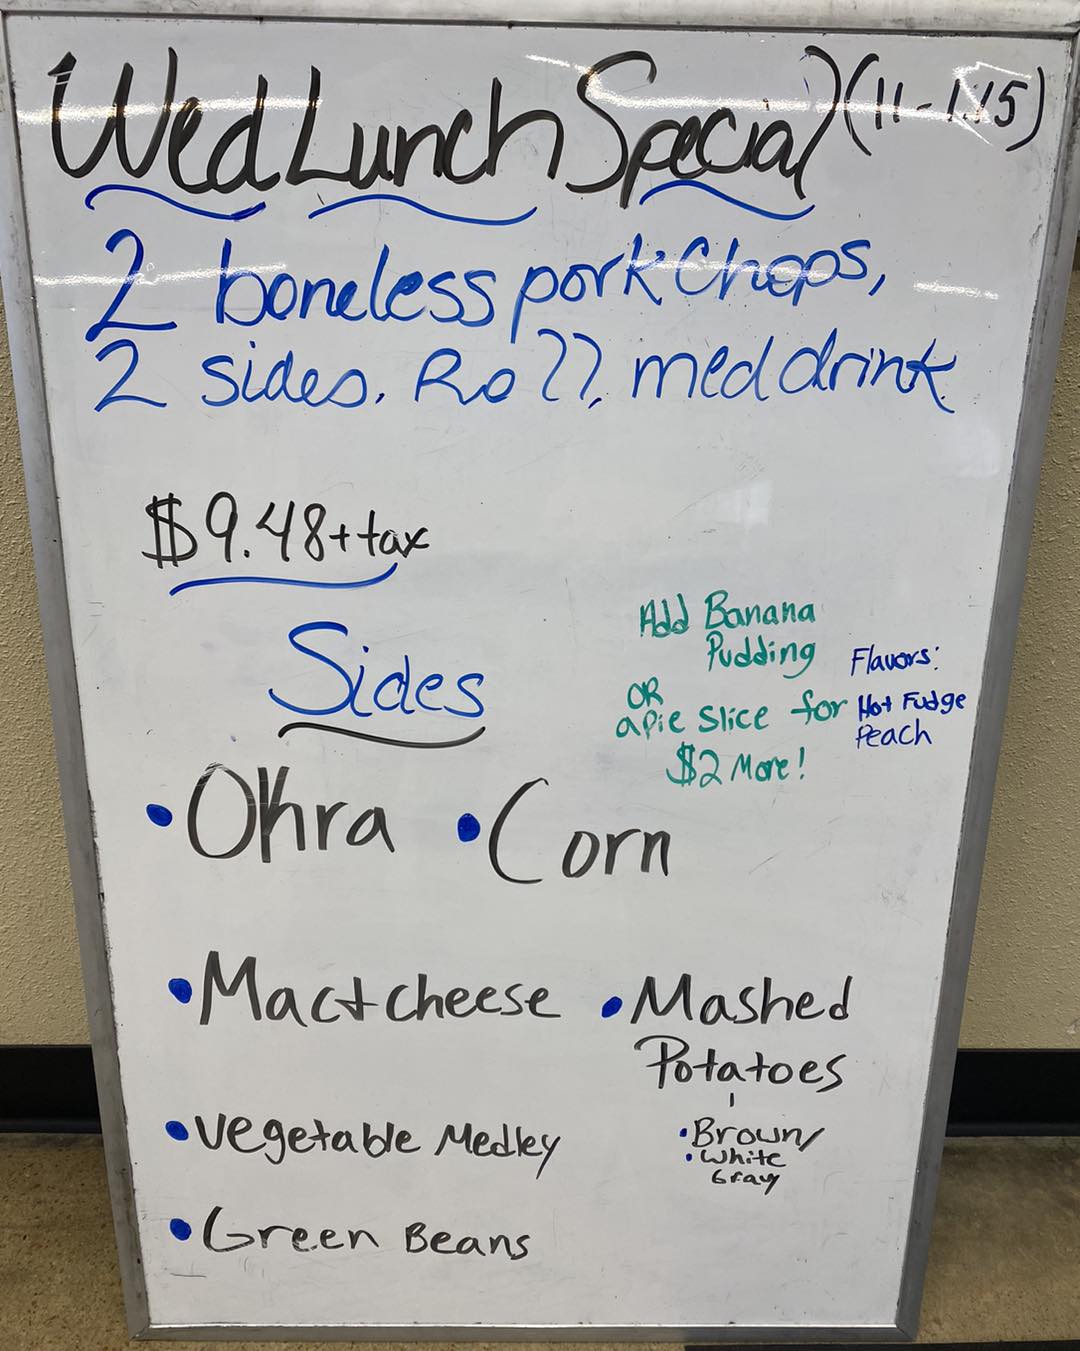 Wed Lunch Special (11-1:15)
2 boneless pork Chops,
2 sides, Roll, med drink
$9.48 + tax
Add Banana
Pudding
OR
a pie slice for
$2 More!
Flavors:
Hot Fudge
Peach
Sides
• Okra • Corn
• Mac + cheese • Mashed
Potatoes
• Brown/
• White
Gravy
• Vegetable Medley
• Green Beans